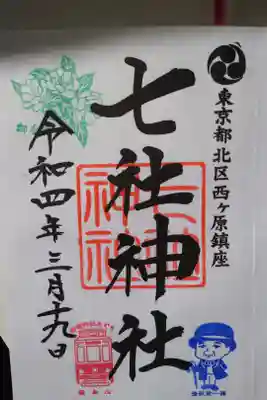 東京都北区西ヶ原鎮座
七社神社
令和四年三月十九日
七社神社